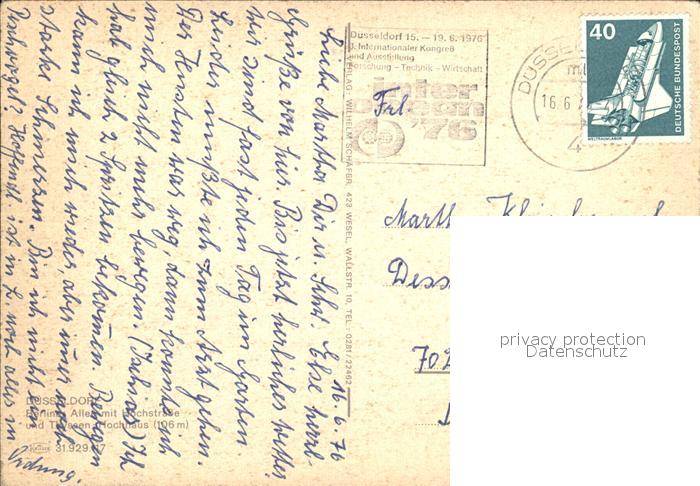 16. 6. 76
Liebe Martha Dir u. Schw. Else herzl.
Grüße von hier. Bis jetzt herrliches Wetter
wir sind fast jeden Tag im Garten
Leider mußte ich zum Arzt gehen.
Der Husten war weg, dann konnte ich
mich nicht mehr bewegen. (Ischias) Ich
hab gleich 2 Spritzen bekommen. Bewegen
kann ich mich wieder, aber immer noch
starke Schmerzen. Bin ich nicht ein
Pechvogel? Hoffentl. ist in L. noch alles in
Ordnung.
DÜSSELDORF
Berliner Allee mit Hochstraße
und Thyssen-Hochhaus (106 m)
31.929/17
VERLAG: WILHELM SCHÄFER, 423 WESEL, WALLSTR. 10, TEL.: 0281/22462
Düsseldorf 15. – 19. 6. 1976
3. Internationaler Kongreß
und Ausstellung
Forschung - Technik - Wirtschaft
inter
ocean
'76
DÜSSEL
16.6.
4
40
DEUTSCHE BUNDESPOST
WELTRAUMLABOR
Frl.
Marth
Dess
702
privacy protection
Datenschutz